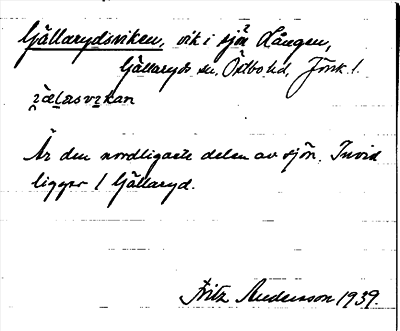 Gällarydsviken, vik i sjön Lången,
Gällaryds sn, Östbo hd, Jönk. l.
Är den nordligaste delen av sjön. Invid
ligger 1 Gällaryd.
Fritz Andersson 1939.